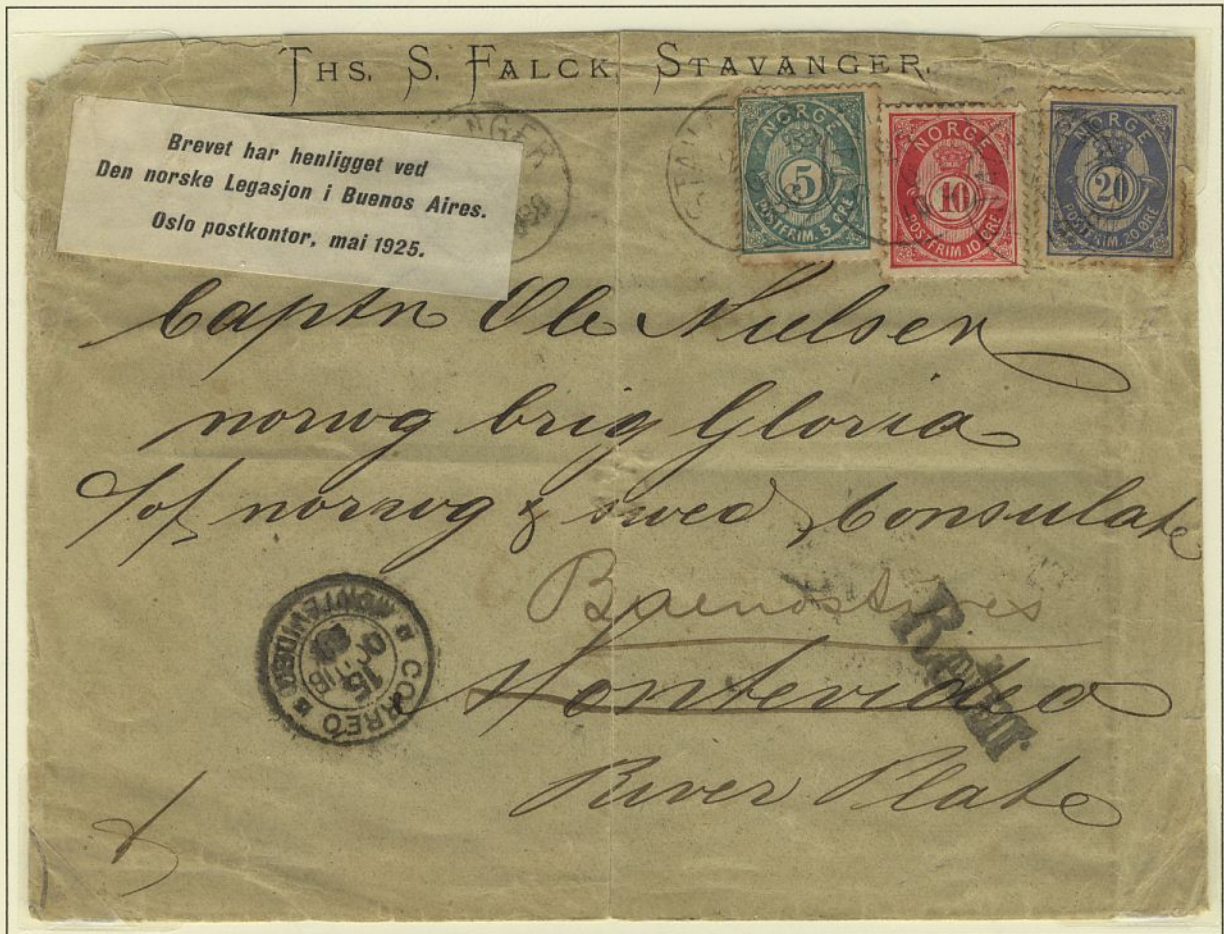 THS. S. FALCK, STAVANGER.
Brevet har henligget ved
Den norske Legasjon i Buenos Aires.
Oslo postkontor, mai 1925.
NORGE
5
POSTFRIM. 5 ØRE
NORGE
10
POSTFRIM. 10 ØRE
NORGE
20
POSTFRIM. 20 ØRE
Captn Ole Nielsen
norwg brig Gloria
c/of norwg & swed Consulate
Buenos Aires
Montevideo
River Plate
Retur
CORREO
MONTEVIDEO
15